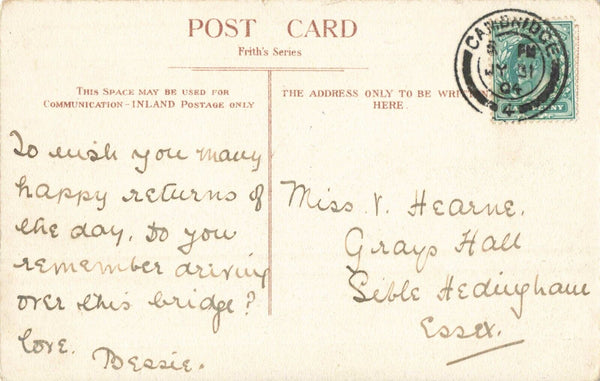 POST CARD
Frith's Series
THIS SPACE MAY BE USED FOR
COMMUNICATION - INLAND POSTAGE ONLY
THE ADDRESS ONLY TO BE WRITTEN
HERE.
CAMBRIDGE
PM
04
HALFPENNY
To wish you many
happy returns of
the day. Do you
remember driving
over this bridge?
Love.
Bessie.
Miss V. Hearne.
Grays Hall
Sible Hedingham
Essex.